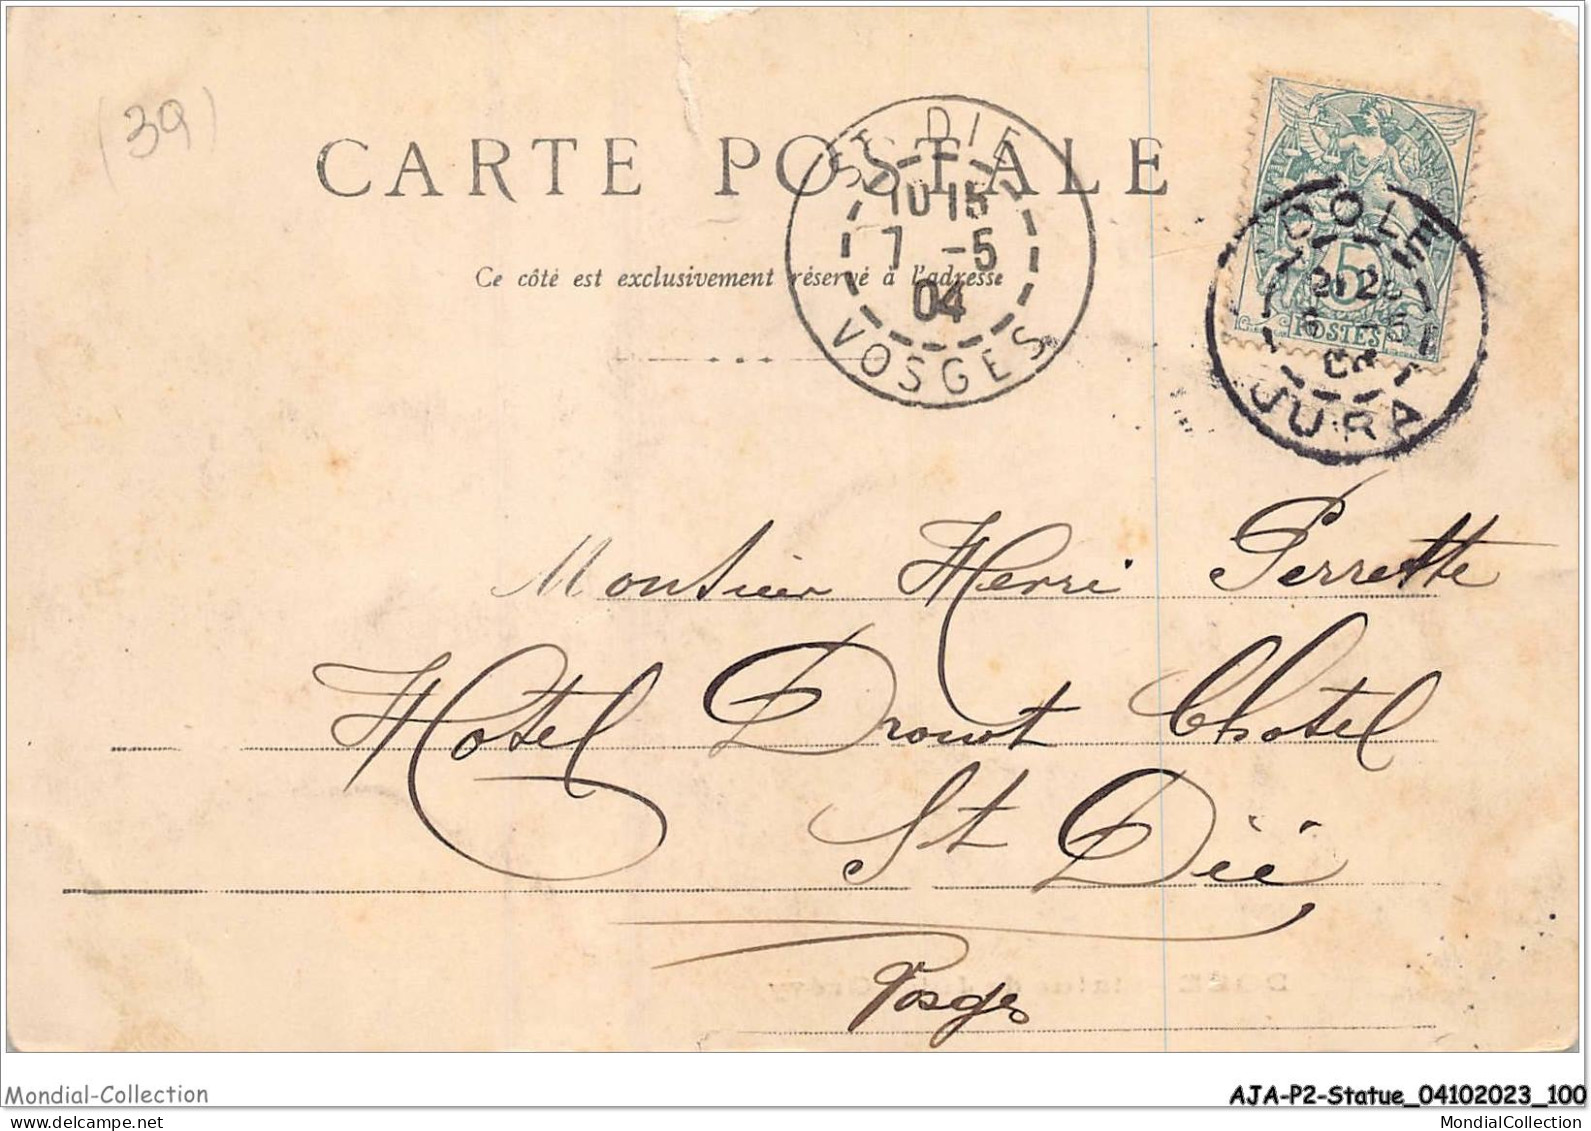 (39)
CARTE POSTALE
ST DIE
10 15
7 -5
04
VOSGES
DOLE
5
POSTES
JURA
Ce côté est exclusivement réservé à l'adresse
Monsieur Henri Perrette
Hotel Drouot Chatel
St Dié
Vosges
Mondial-Collection
AJA-P2-Statue_04102023_100
MondialCollection